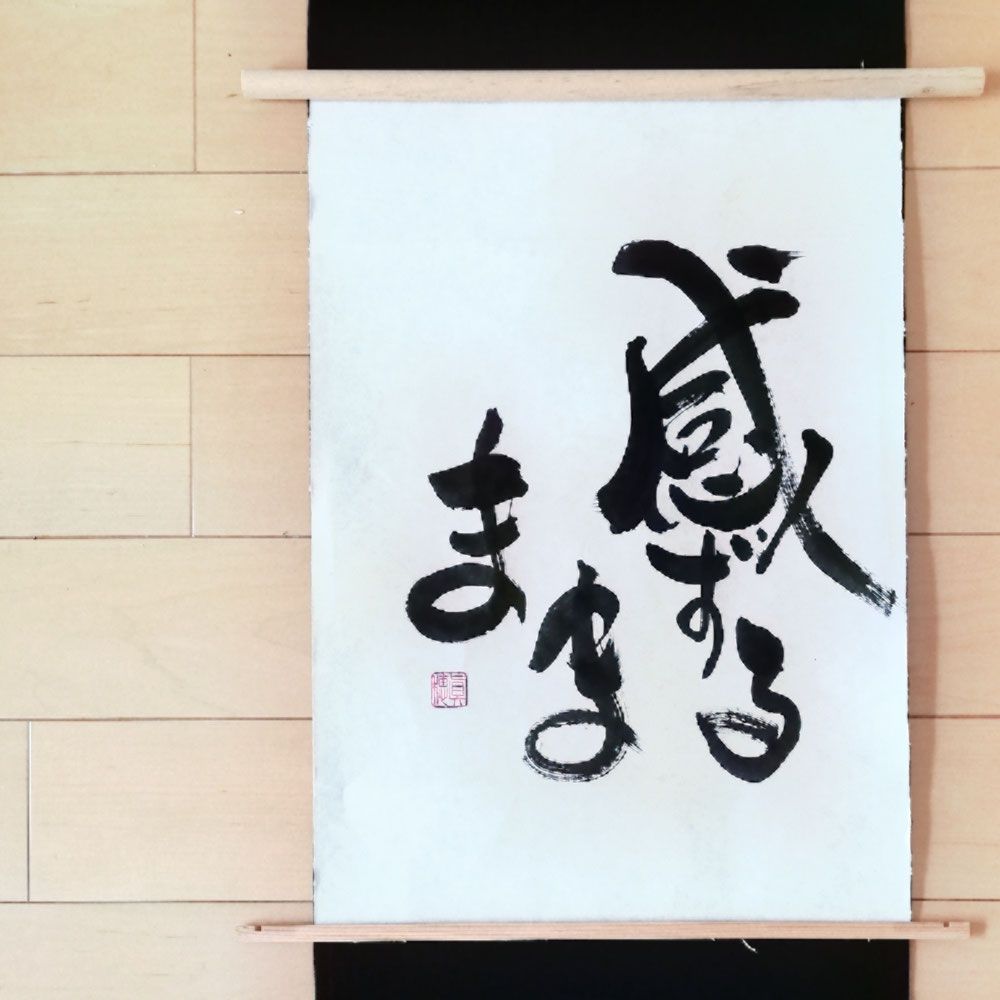 感ずる
まま